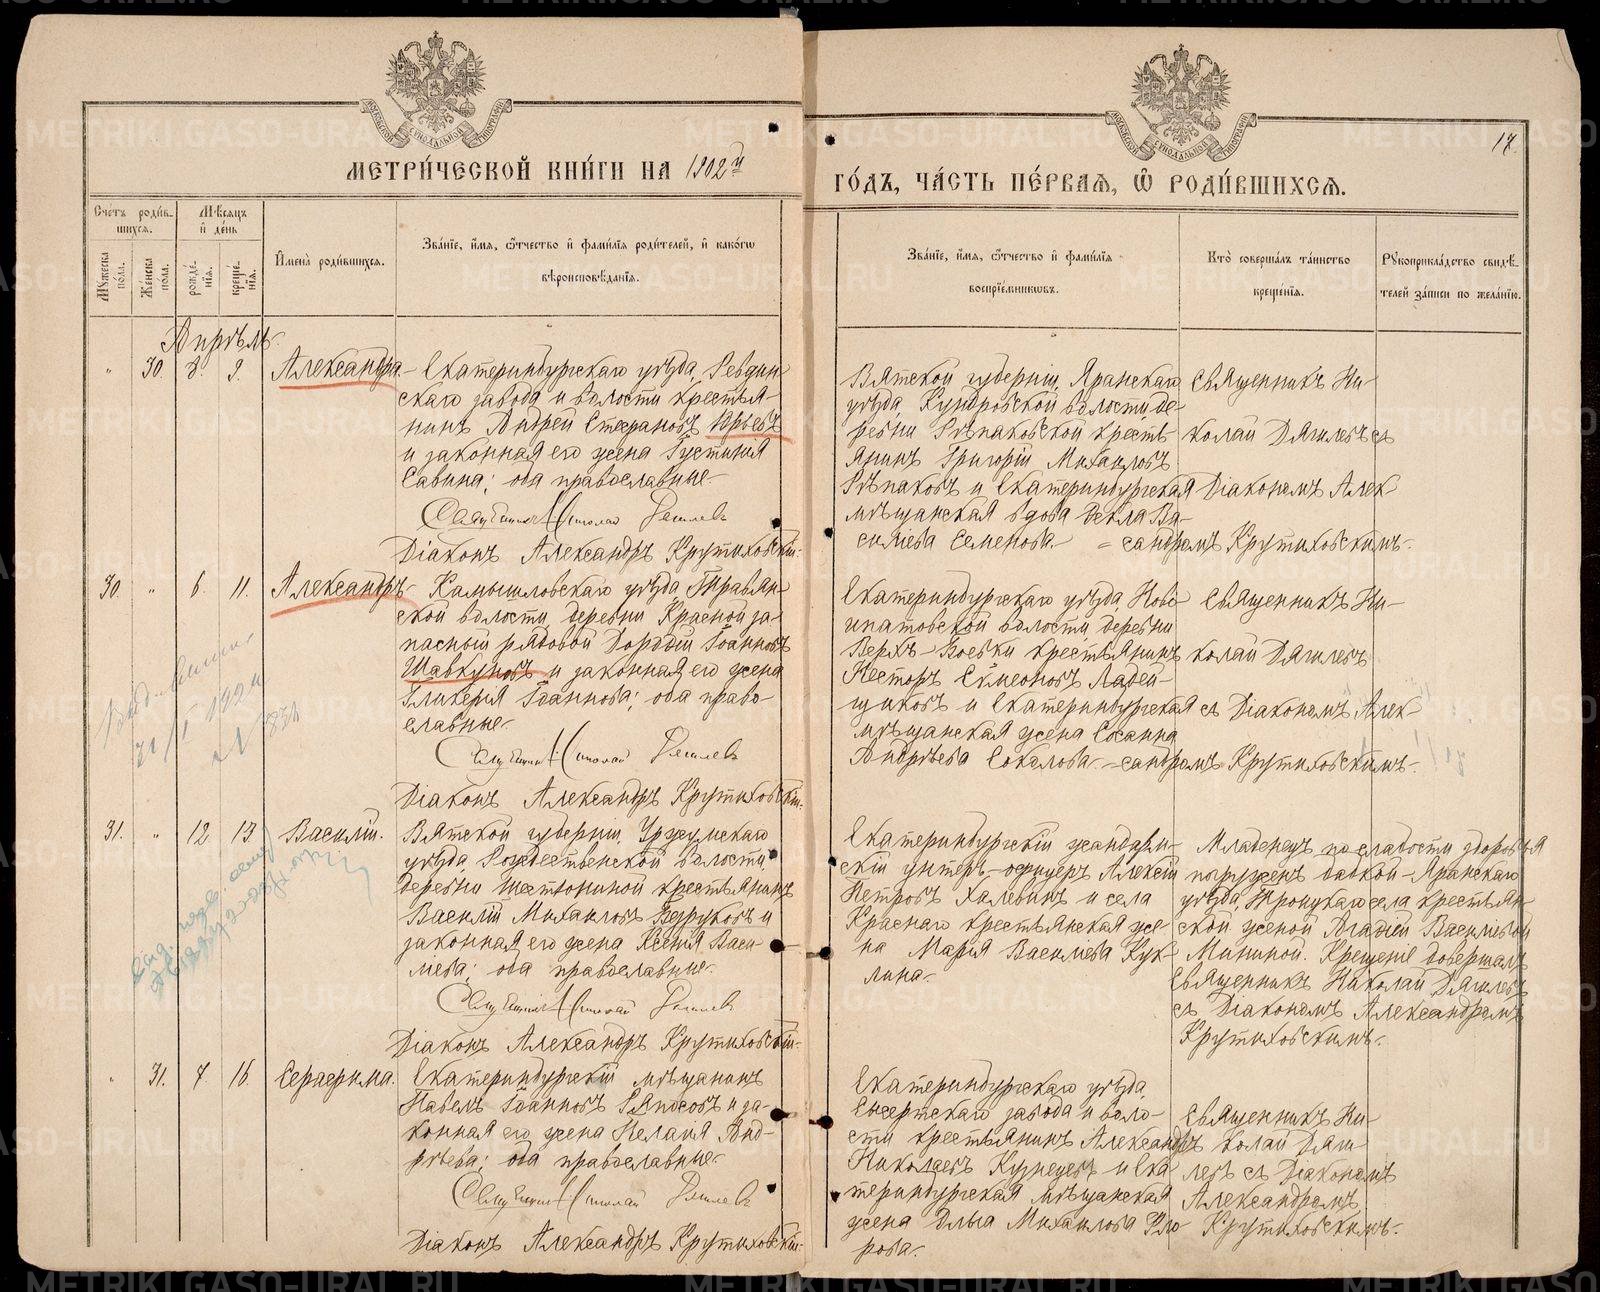 МЕТРИ́ЧЕСКОЙ КНИ́ГИ НА 1902й
ГО́ДЪ, ЧА́СТЬ ПЕ́РВАѦ, Ѡ҆ РОДИ́ВШИХСѦ.
17.
Счетъ роди́в-
шихсѧ.
Мѣ́сѧцъ
и҆ де́нь
Мꙋ́жеска по́ла.
Же́нска по́ла.
рожде́-
нїѧ.
креще́-
нїѧ.
И҆мена̀ роди́вшихсѧ.
Зва́нїе, и҆́мѧ, ѻ҆́тчество и҆ фами́лїѧ роди́телей, и҆ како́гѡ
вѣроисповѣ́данїѧ.
Зва́нїе, и҆́мѧ, ѻ҆́тчество и҆ фами́лїѧ
воспрїе́мникѡвъ.
Кто̀ соверша́лъ та́инство
креще́нїѧ.
Рꙋкоприкла́дство свидѣ́-
телей за́писи по жела́нїю.
Апрѣль
" 30. 8. 9. Александра. Екатеринбургскаго уѣзда, Ревдин-
скаго завода и волости крестья-
нинъ Андрей Стефановъ Юрьевъ
и законная его жена Густинія
Савина; оба православные.
Священникъ Николай Дягилевъ
Діаконъ Александръ Крутиховскій.
Вятской губерніи, Яранскаго
уѣзда, Кундровской волости де-
ревни Рѣпаковской кресть
янинъ Григорій Михаиловъ
Рѣпаковъ и Екатеринбургская
мѣщанская вдова Фекла Ва-
сильева Семенова.
Священникъ Ни-
колай Дягилевъ съ
Діакономъ Алек
=сандромъ Крутиховскимъ.
30. " 6. 11. Александръ. Камышловскаго уѣзда, Травян-
ской волости, деревни Красной за-
пасный рядовой Дорофій Іоанновъ
Шавкуновъ и законная его жена
Гликерія Іоаннова; оба право-
славные.
Священникъ Николай Дягилевъ
Діаконъ Александръ Крутиховскій.
Екатеринбургскаго уѣзда, Ново
ипатовской волости, деревни
Верхъ-Боевки крестьянинъ
Несторъ Симеоновъ Ладей-
щиковъ и Екатеринбургская
мѣщанская жена Сосанна
Андреева Соколова.
Священникъ Ни-
колай Дягилевъ
съ Діакономъ Алек
=сандромъ Крутиховскимъ.
31. " 12 13. Василій. Вятской губерніи, Уржумскаго
уѣзда, Рождественской волости,
деревни крестьянинъ
Василій Михаиловъ Безруковъ и
законная его жена Ксенія Васи-
льева; оба православные.
Священникъ Николай Дягилевъ
Діаконъ Александръ Крутиховскій.
Екатеринбургскій жандарм-
скій унтеръ-офицеръ Алексій
Петровъ Халевинъ и села
Краснаго крестьянская же-
на Марія Васильева Кук
лина.
Младенецъ по слабости здоровья
погруженъ бабкой-Яранскаго
уѣзда, села крестьян-
ской женой Агафіей Васильевой
Мининой. Крещеніе довершалъ
Священникъ Николай Дягилевъ
съ Діакономъ Александромъ
Крутиховскимъ.
" 31. 7 16. Серафима. Екатеринбургскій мѣщанинъ
Павелъ Іоанновъ Ряпосовъ и за-
конная его жена Пелагія Анд-
реева; оба православные.
Священникъ Николай Дягилевъ
Діаконъ Александръ Крутиховскій.
Екатеринбургскаго уѣзда,
Сысертскаго завода и воло-
сти крестьянинъ Александръ
Николаевъ Кузнецовъ и Ека
теринбургская мѣщанская
жена Ольга Михаилова Фло
рова.
Священникъ Ни-
колай Дяги-
левъ съ Діакономъ
Александромъ
Крутиховскимъ.
METRIKI.GASO-URAL.RU